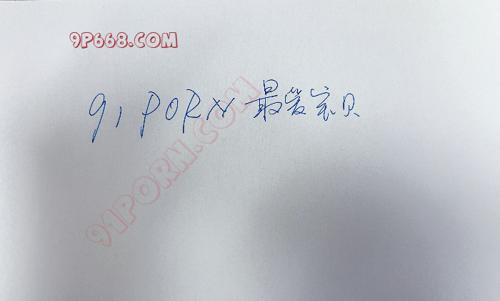 9P668.COM
91PORN 最爱宝贝
91PORN.COM